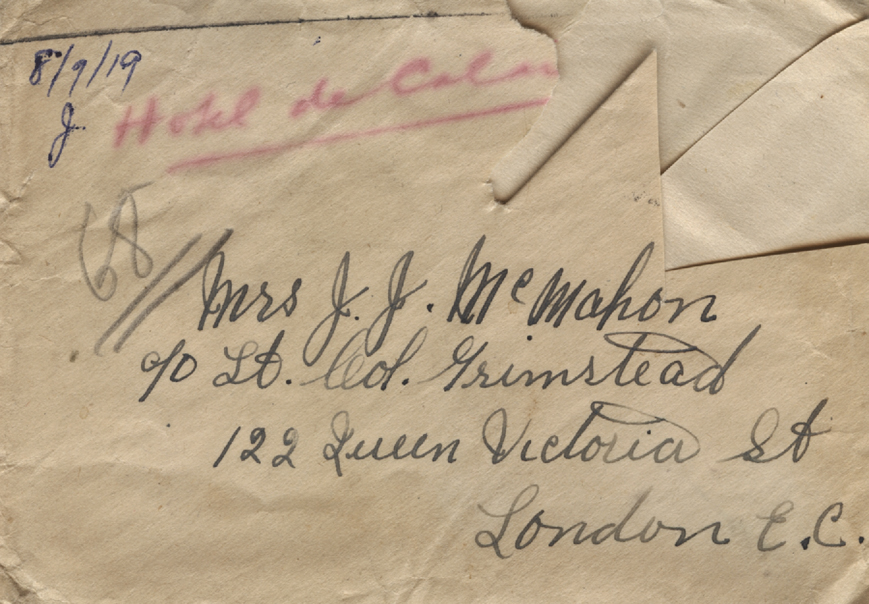 8/9/19
J. Hotel de
68//
Mrs J. J. McMahon
c/o Lt. Col. Grimstead
122 Queen Victoria St
London E.C.